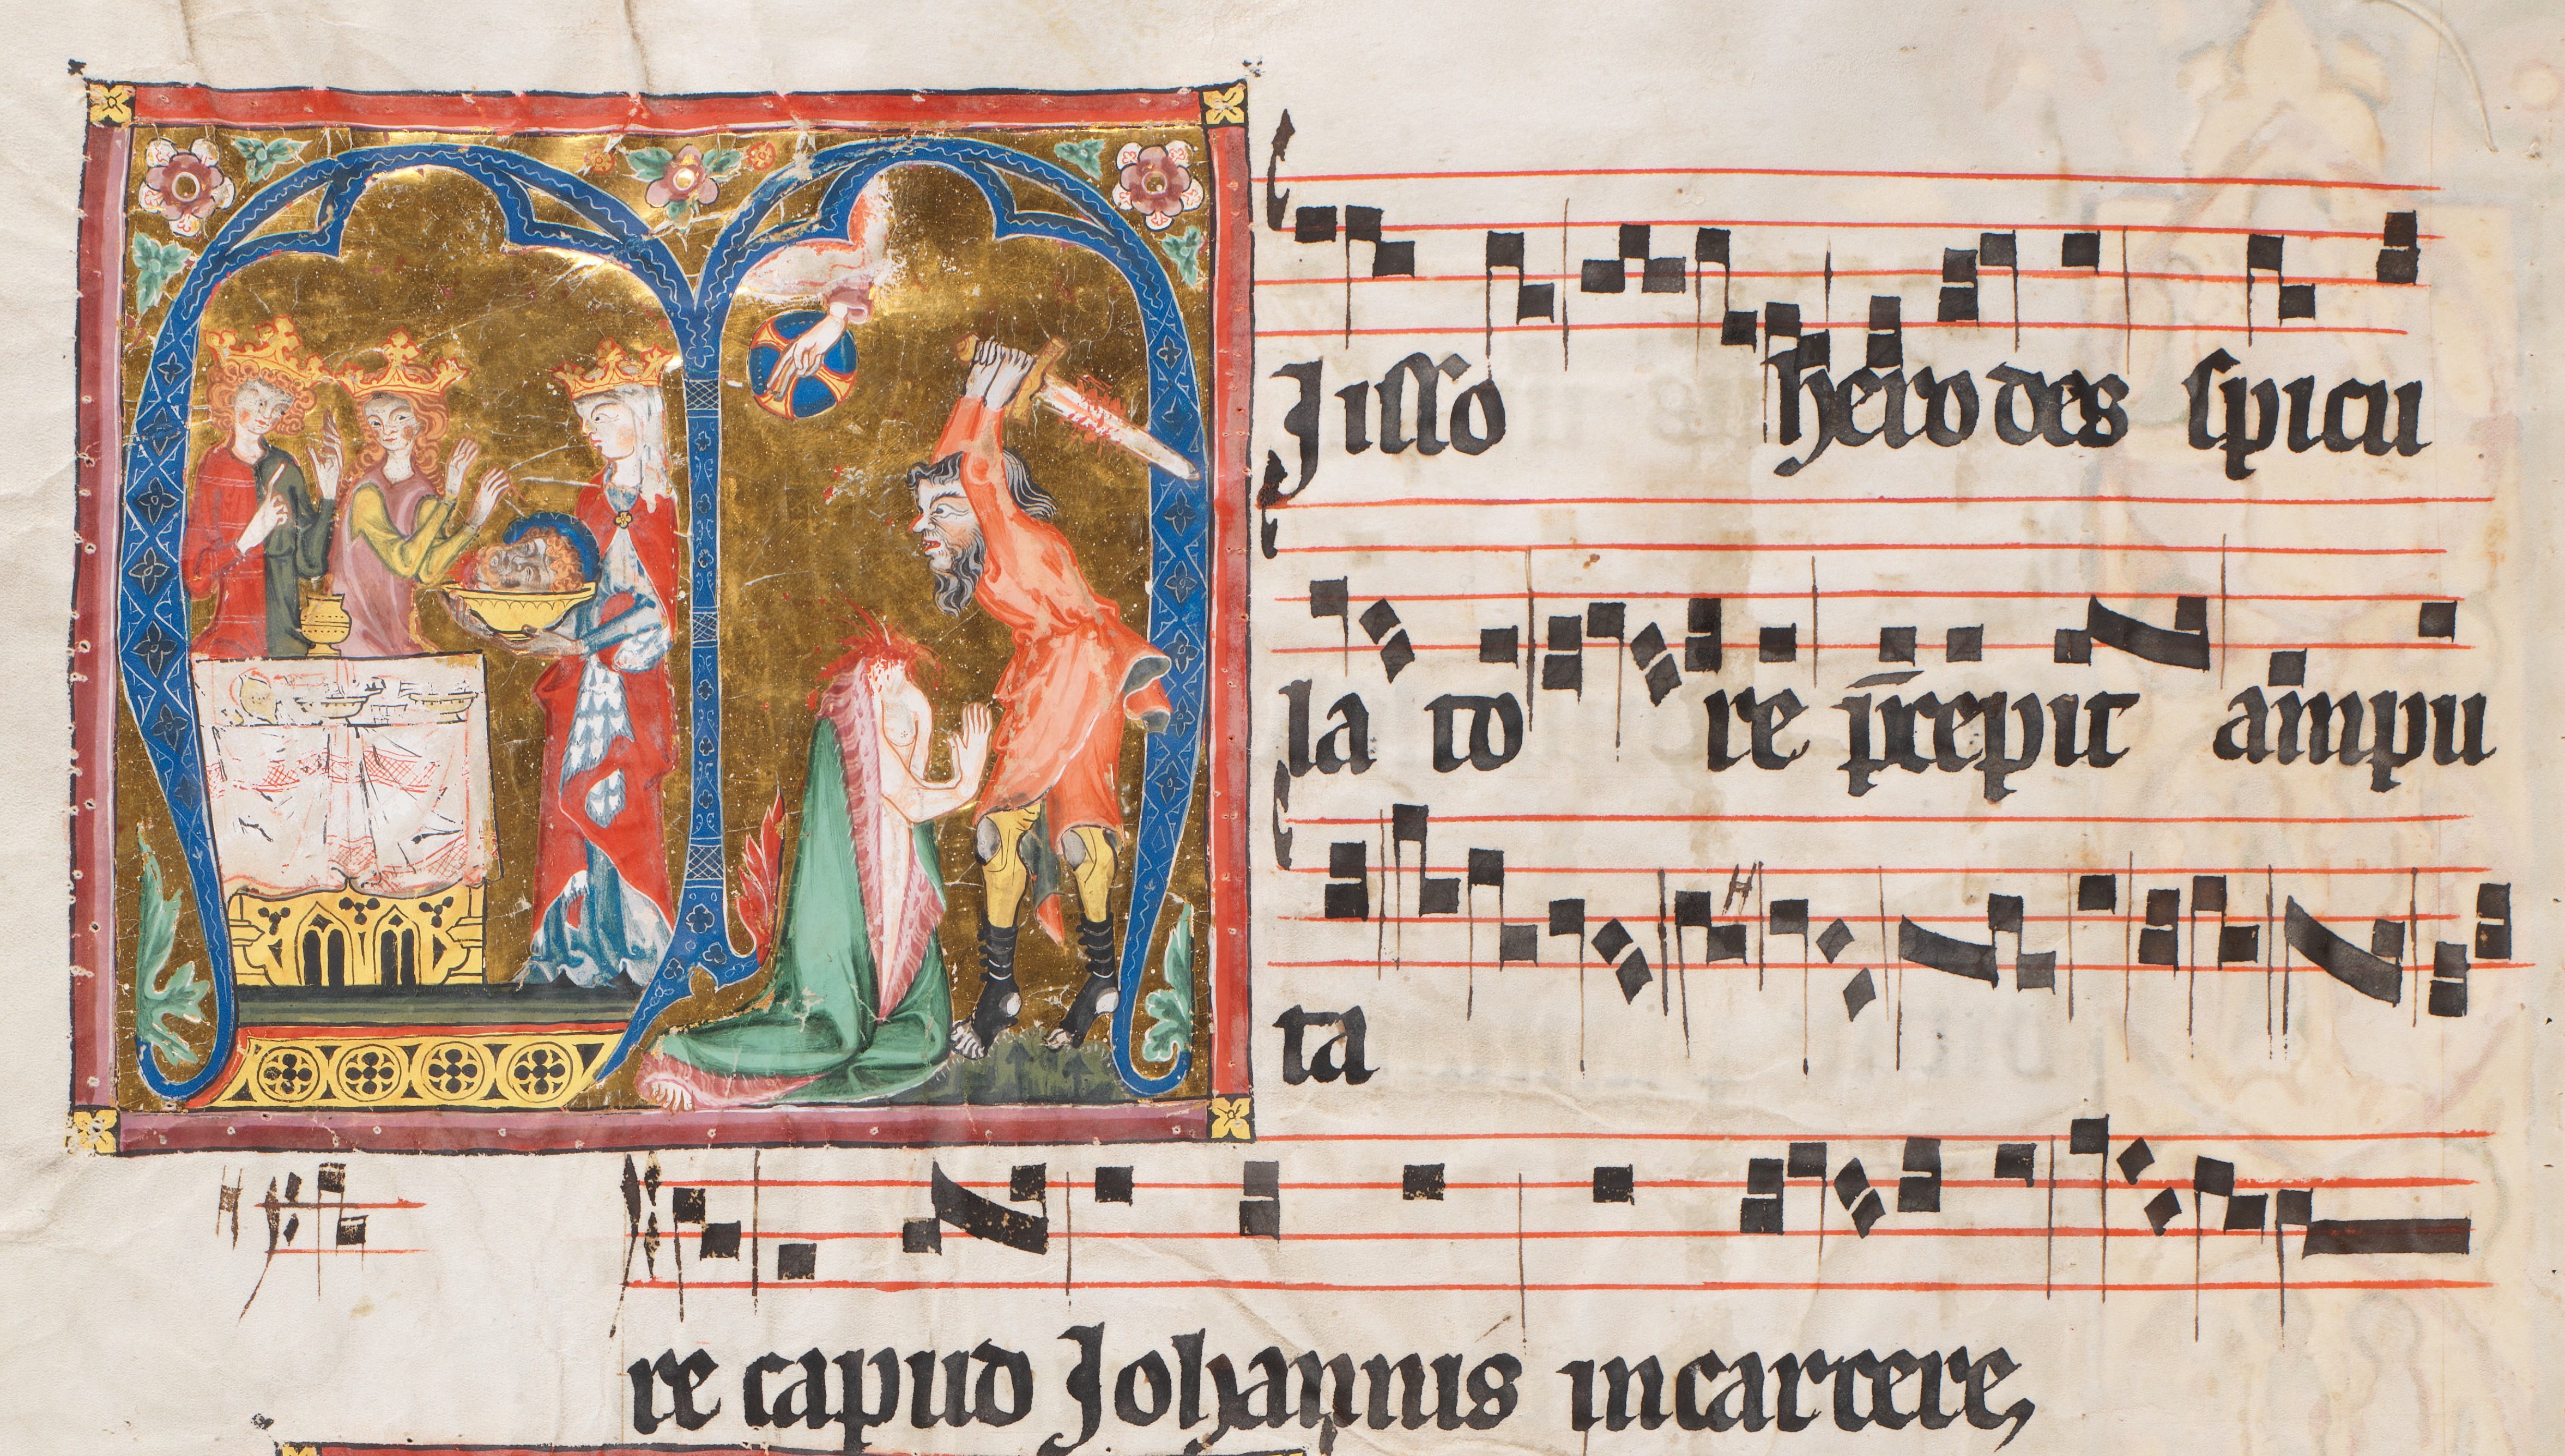 Misso herodes spicu
la to re p̄cepit ampu
ta
re capud Johannis in carcere,